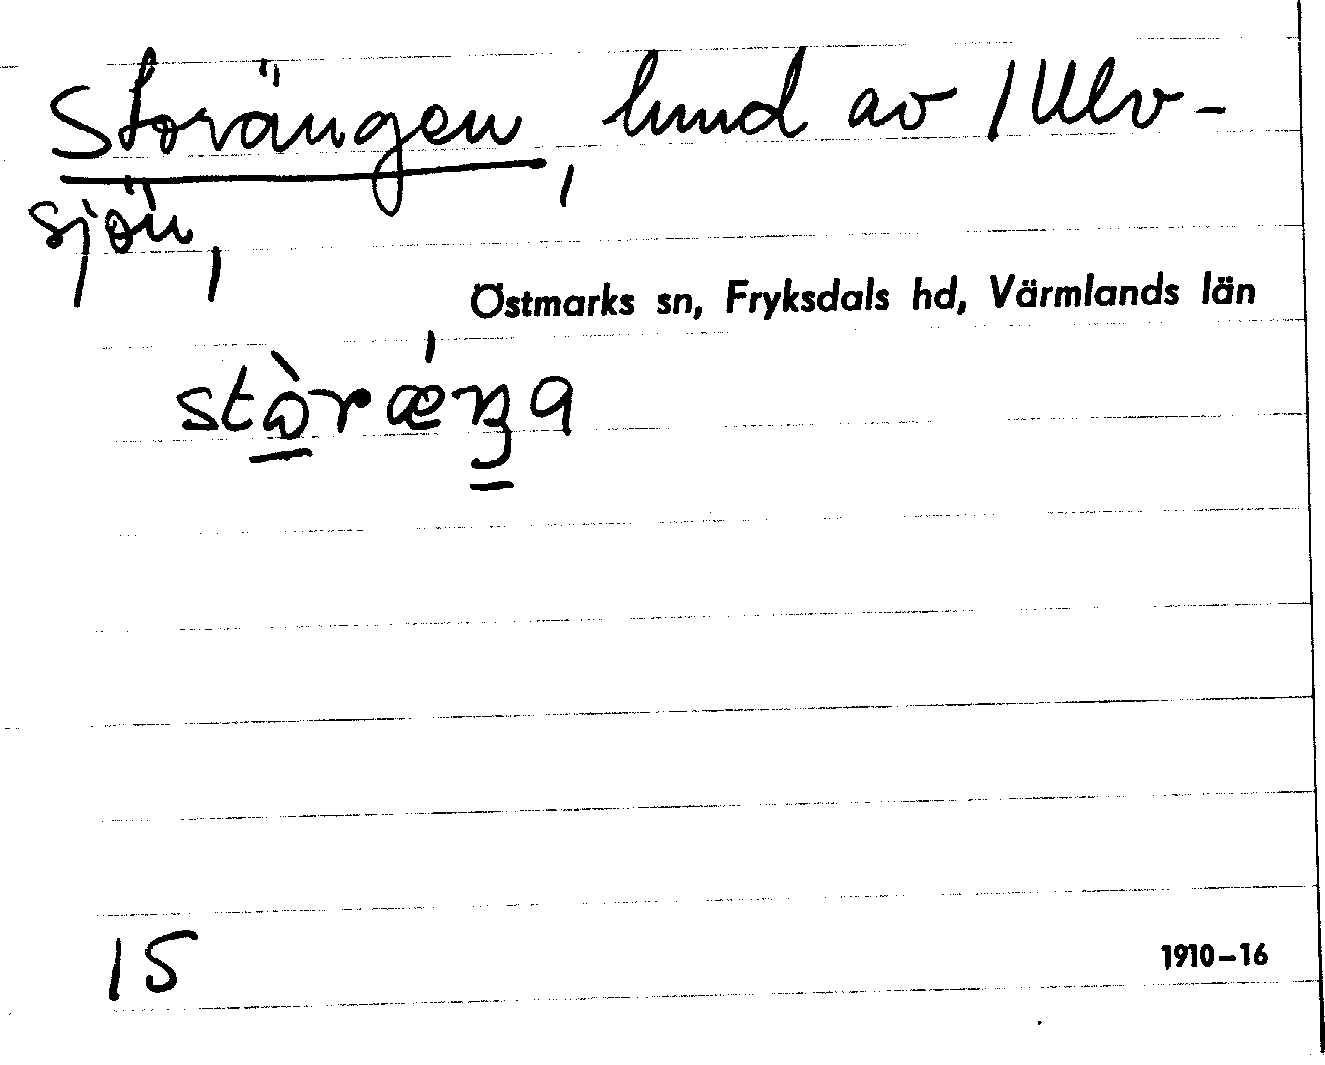 Storängen, hmd av 1 Ulv-
sjön,
Östmarks sn, Fryksdals hd, Värmlands län
stɷ̀rǽŋa
15
1910–16